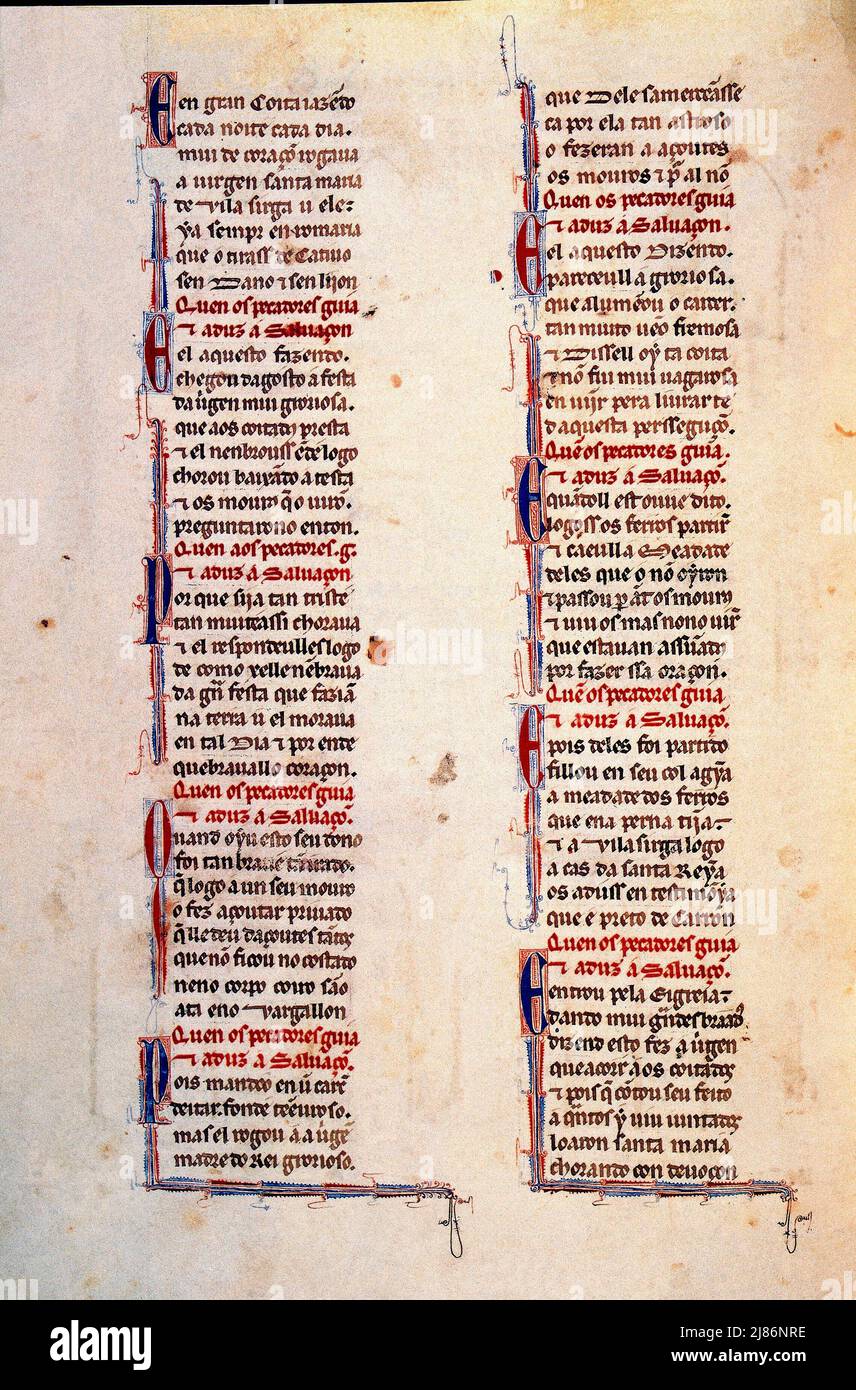 En gran Coita iazẽdo
cada noite cada dia.
mui de coraçõ rogaua
a uirgen santa maria
de vila sirga u ele
ya sempr en romaria
que o tirass de Catiuo
sen Dano ⁊ sen lijon
Quen os pecadores guia
⁊ aduz á Saluaçon
El aquesto fazendo.
chegou dagosto a festa
da uĩgen mui gloriosa.
que aos coitados presta
⁊ el nenbrouss ẽde logo
chorou baixãdo a testa
⁊ os mouros q̃ o uirõ.
preguntarono enton.
Quen aos pecadores. g.
⁊ aduz á Saluaçon
Por que sija tan triste
tan muit e assi choraua
⁊ el respondeulles logo
de como xelle nẽbraua
da grã festa que faziã
na terra u el moraua
en tal Dia ⁊ por ende
quebrauallo coraçon.
Quen os pecadores guia
⁊ aduz á Saluaçõ.
Quand oyu esto seu dono
foi tan braue
q̃ logo a un seu mouro
o fez açoutar priuado
q̃ lle deu daçoutes tãtos
que nõ ficou no costado
neno corpo coiro são
ata eno vargallon
Quen os pecadores guia
⁊ aduz a Saluaçõ.
Pois mandeo en ũ carcẽr
deitar. fonde tẽeuroso.
mas el rogou á a uĩgẽ
madre do Rei glorioso.
que Dele sa mercẽ asse
ca por ela tan astroso
o fezeran a açoutes
os mouros ⁊ p̃ al nõ
Quen os pecadores guia
⁊ aduz á Saluaçon.
El aquesto Dizendo.
pareceull a groriosa.
que alumẽou o carcer.
tan muito uẽo fremosa
⁊ Dissell oỹ ta coita
⁊ nõ fui mui uagarosa
en uĩjr pera liurar te
d aquesta perssegucõ.
Quẽ os pecadores guia.
⁊ aduz á Saluaçõ.
E quãdoll est ouue dito.
logoss os ferros partirõ
⁊ caeulla Meadade
deles que o nõ oyron
⁊ passou p̃ ãt os mouros
⁊ uiu os mas nono uirõ
que estauan assũados
por fazer ssa oraçon.
Quẽ os pecadores guia
⁊ aduz á Saluaçõ.
E pois deles foi partido
fillou en seu col agỹa
a meadade dos ferros
que ena perna tĩja
⁊ a vila sirga logo
a cas da santa Reỹa
os aduss en testimõya
que e preto de Carron
Quen os pecadores guia
⁊ aduz á Saluaçõ.
E entrou pela Eigreia
dando mui grãdes braados
dizend esto fez a uĩgen
que acorr aos coitados
⁊ pois q̃ cõtou seu feito
a quãtos ỹ uiu iuntados
loaron santa maria
chorando con deuoçon
alamy
Image ID: 2J86NRE
www.alamy.com